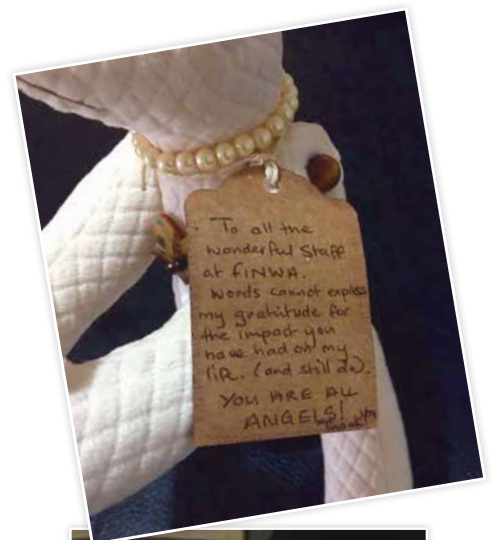 To all the
wonderful Staff
at FINWA.
Words cannot express
my gratitude for
the impact you
have had on my
life. (and still do).
YOU ARE ALL
ANGELS!